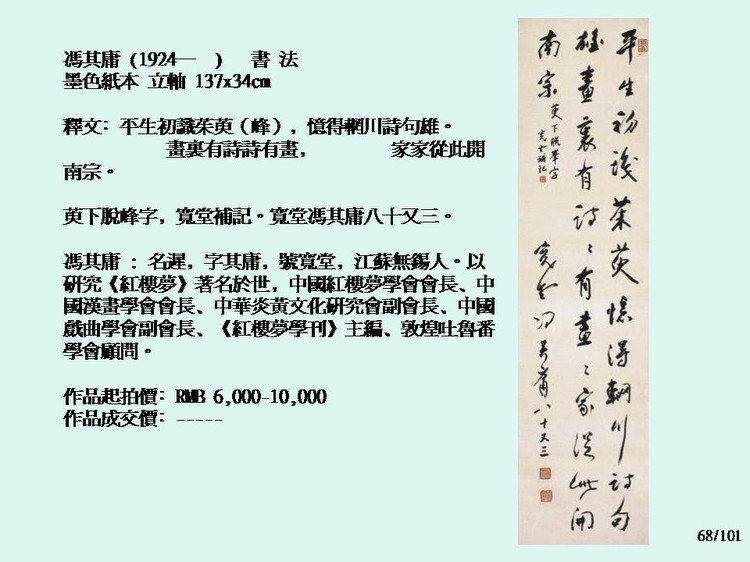 馮其庸 (1924—  )  書 法
墨色紙本 立軸 137x34cm
釋文: 平生初識茱萸（峰）, 憶得輞川詩句雄。
畫裏有詩詩有畫,  家家從此開
南宗。
萸下脫峰字, 寬堂補記。寬堂馮其庸八十又三。
馮其庸 : 名遲, 字其庸, 號寬堂, 江蘇無錫人。以
研究《紅樓夢》著名於世, 中國紅樓夢學會會長、中
國漢畫學會會長、中華炎黃文化研究會副會長、中國
戲曲學會副會長、《紅樓夢學刊》主編、敦煌吐魯番
學會顧問。
作品起拍價: RMB 6,000-10,000
作品成交價: -----
平生初識茱萸憶得輞川詩句
雄畫裏有詩〻有畫〻家從此開
南宗
萸下脫峯字
寬堂補記
寬堂馮其庸八十又三
68/101